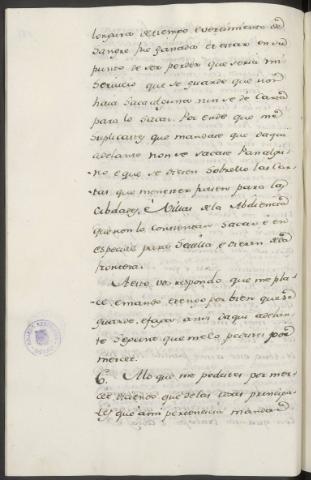 longura de tiempo e vertimiento de
sangre fue ganada et estar en su
punto de se perder que seria mi
servicio que se guarde que non
haia saca alguna nin se dé Carta
para lo sacar. Por ende que me
suplicavades que mandase que daqui
adelante non se sacase Pan algu-
no é que se diesen sobrello las Car-
tas que menester fuesen para las
Cibdades, é Villas de la
que non lo consientan sacar é en
especial para Sevilla e
frontera.
A esto vos respondo que me pla-
ce, e mando e tengo por bien que se
guarde, e faga ansi daqui adelan-
te segunt que me lo pedides por
merced.
6. A lo que me pedistes por mer-
ced diciendo que de las cosas principa-
les que a mi pertenecia mandar